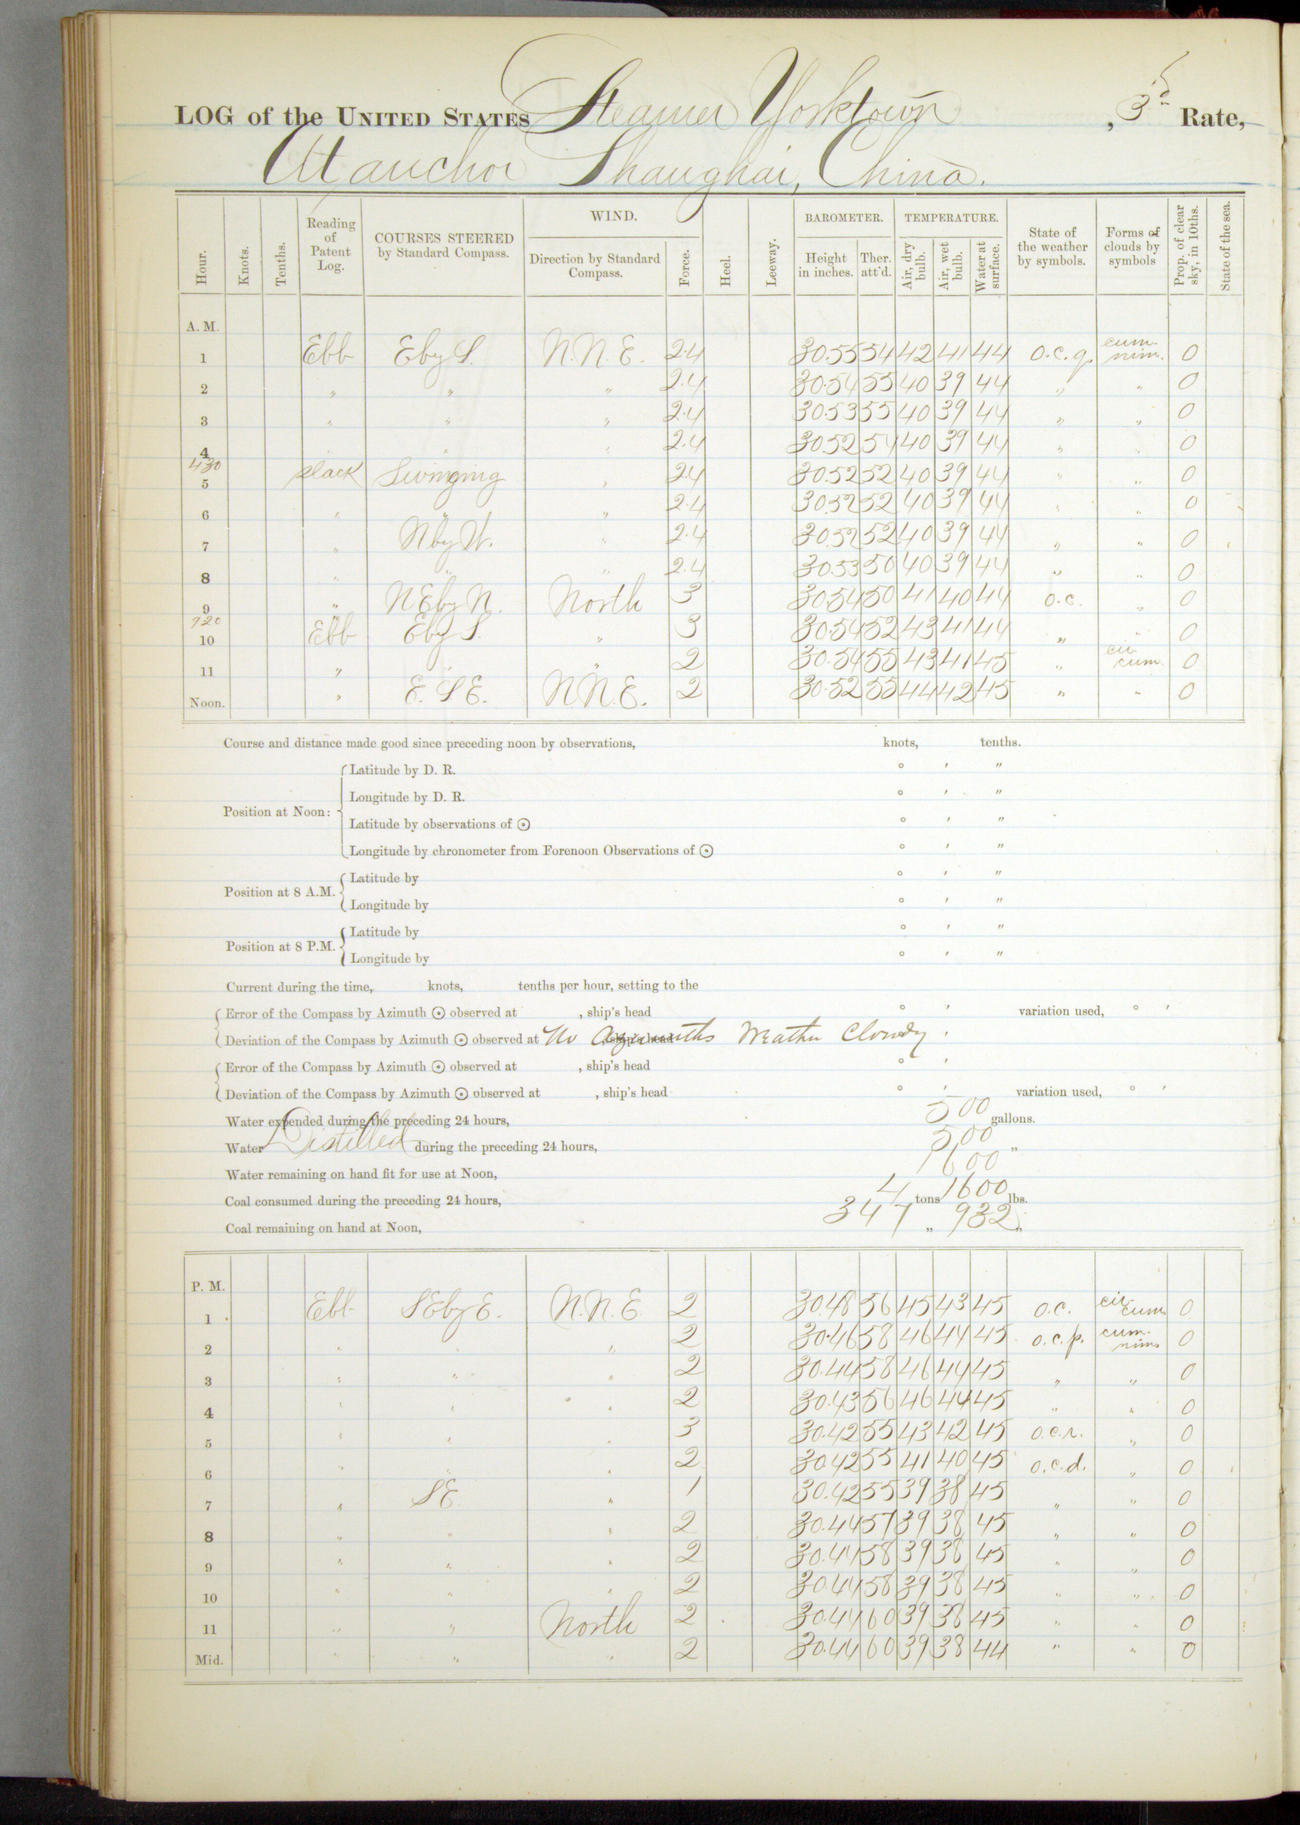 LOG of the UNITED STATES Steamer Yorktown, 3d Rate,
At anchor Shanghai, China.
Hour. Knots. Tenths. Reading of Patent Log. COURSES STEERED by Standard Compass. WIND. Direction by Standard Compass. Force. Heel. Leeway. BAROMETER. Height in inches. Ther. att'd. TEMPERATURE. Air, dry bulb. Air, wet bulb. Water at surface. State of the weather by symbols. Forms of clouds by symbols Prop. of clear sky, in 10ths. State of the sea.
A. M.
1 Ebb E by S. N. N. E. 2.4 30.55 54 42 41 44 o.c.q. cum. nim. 0
2 " " " 2.4 30.54 55 40 39 44 " " 0
3 " " " 2.4 30.53 55 40 39 44 " " 0
4 " " 2.4 30.52 54 40 39 44 " " 0
430
5 slack Swinging " 2.4 30.52 52 40 39 44 " " 0
6 " " " 2.4 30.52 52 40 39 44 " " 0
7 " N by W. " 2.4 30.52 52 40 39 44 " " 0
8 " " " 2.4 30.53 50 40 39 44 " " 0
9 " N E by N. North 3 30.54 50 41 40 44 o.c. " 0
920
10 Ebb E by S. " 3 30.54 52 43 41 44 " " 0
11 " " " 2 30.54 55 43 41 45 " cir. cum. 0
Noon. " E. S E. N N. E. 2 30.52 55 44 42 45 " " 0
Course and distance made good since preceding noon by observations, knots, tenths.
Position at Noon: Latitude by D. R. ° ′ ″
Longitude by D. R. ° ′ ″
Latitude by observations of ☉ ° ′ ″
Longitude by chronometer from Forenoon Observations of ☉ ° ′ ″
Position at 8 A.M. Latitude by ° ′ ″
Longitude by ° ′ ″
Position at 8 P.M. Latitude by ° ′ ″
Longitude by ° ′ ″
Current during the time, knots, tenths per hour, setting to the
Error of the Compass by Azimuth ☉ observed at , ship's head ° ′ variation used, ° ′
Deviation of the Compass by Azimuth ☉ observed at No Azimuths Weather Cloudy
Error of the Compass by Azimuth ☉ observed at , ship's head ° ′
Deviation of the Compass by Azimuth ☉ observed at , ship's head ° ′ variation used, ° ′
Water expended during the preceding 24 hours, 500 gallons.
Water Distilled during the preceding 24 hours, 500 "
Water remaining on hand fit for use at Noon, 1600
Coal consumed during the preceding 24 hours, 4 tons 1600 lbs.
Coal remaining on hand at Noon, 347 " 932 "
P. M.
1 Ebb S E by E. N. N. E 2 30.48 56 45 43 45 o.c. cir. cum. 0
2 " " " 2 30.46 58 46 44 45 o.c.p. cum. nim. 0
3 " " " 2 30.44 58 46 44 45 " " 0
4 " " " 2 30.43 56 46 44 45 " " 0
5 " " " 3 30.42 55 43 42 45 o.c.r. " 0
6 " " " 2 30.42 55 41 40 45 o.c.d. " 0
7 " S E. " 1 30.42 55 39 38 45 " " 0
8 " " " 2 30.44 57 39 38 45 " " 0
9 " " " 2 30.44 58 39 38 45 " " 0
10 " " " 2 30.44 58 39 38 45 " " 0
11 " " North 2 30.44 60 39 38 45 " " 0
Mid. " " " 2 30.44 60 39 38 44 " " 0